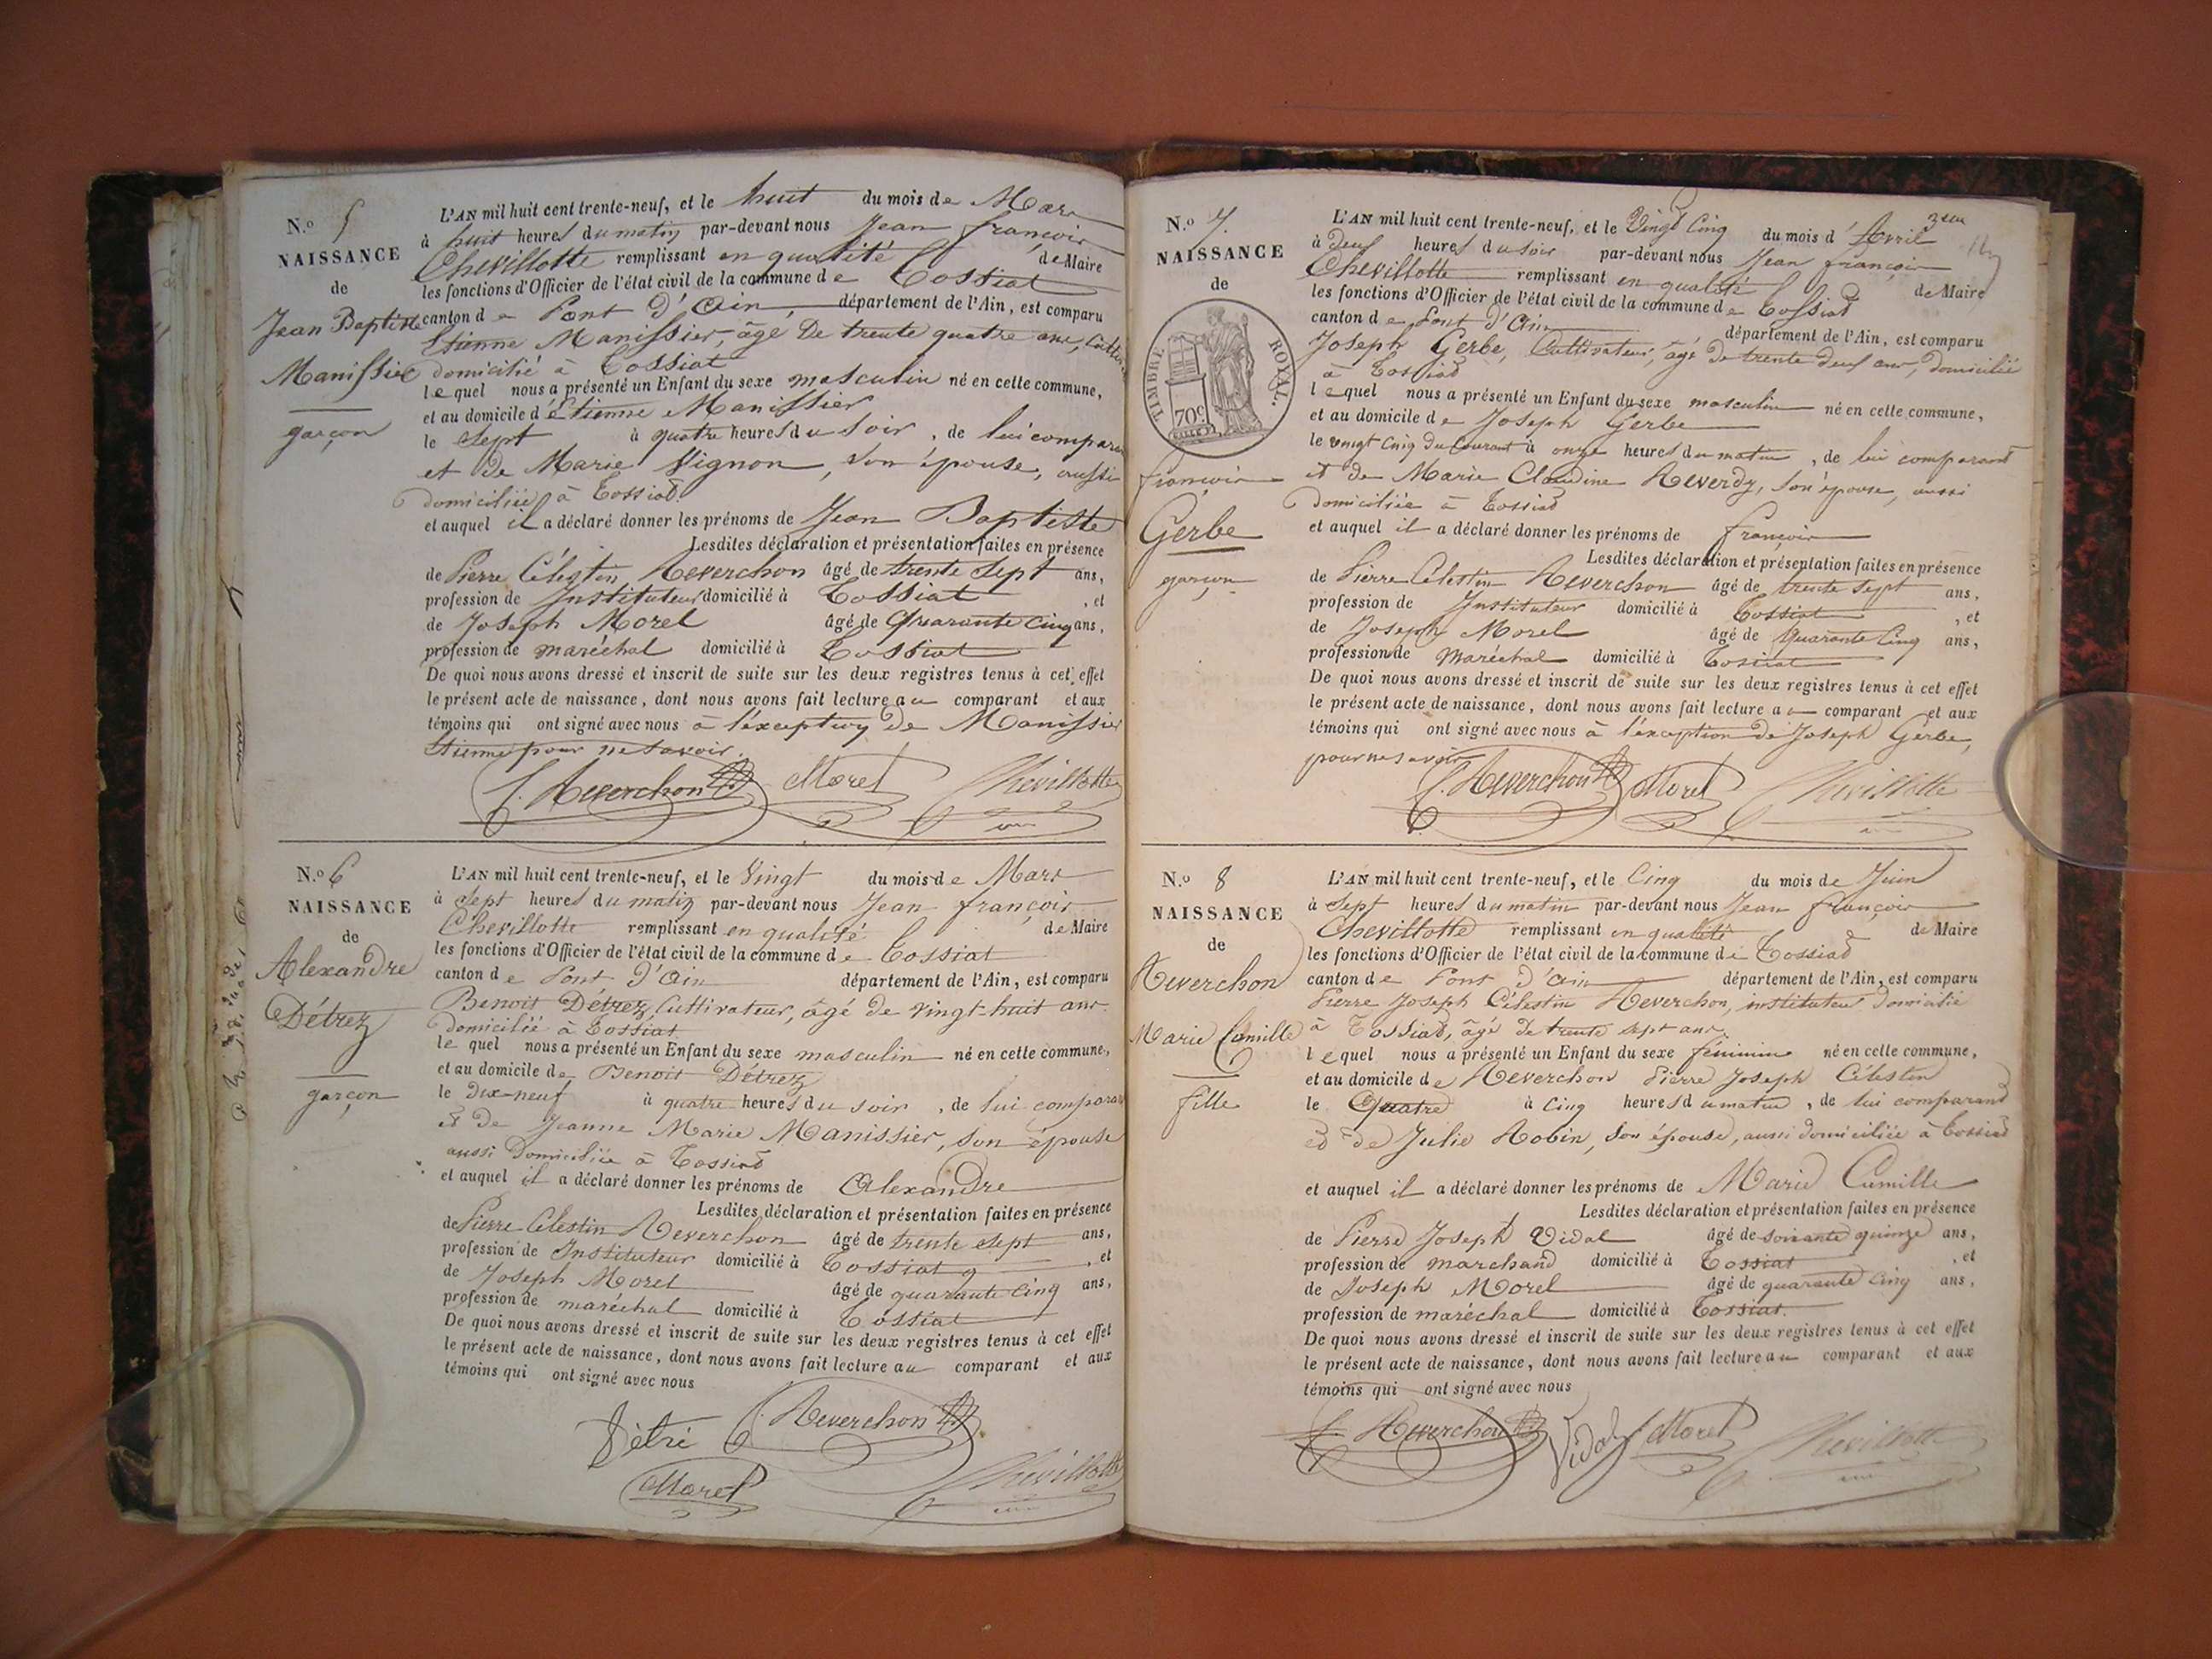 N.º 5
NAISSANCE
de
Jean Baptiste
Manissier
garçon
L'AN mil huit cent trente-neuf, et le huit du mois de Mars
à huit heures du matin par-devant nous Jean françois
Chevillotte remplissant en qualité de Maire
les fonctions d'Officier de l'état civil de la commune de Tossiat
canton de Pont d'Ain, département de l'Ain, est comparu
Etienne Manissier, âgé De trente quatre ans,
domicilié à Tossiat
lequel nous a présenté un Enfant du sexe masculin né en cette commune,
et au domicile d'Etienne Manissier
le sept à quatre heures du soir, de lui comparant
et de Marie Vignon, son épouse, aussi
domiciliée à Tossiat
et auquel il a déclaré donner les prénoms de Jean Baptiste
Lesdites déclaration et présentation faites en présence
de Pierre Célestin Reverchon âgé de trente sept ans,
profession de Instituteur domicilié à Tossiat, et
de Joseph Morel âgé de Quarante cinq ans,
profession de maréchal domicilié à Tossiat
De quoi nous avons dressé et inscrit de suite sur les deux registres tenus à cet effet
le présent acte de naissance, dont nous avons fait lecture au comparant et aux
témoins qui ont signé avec nous à l'exception de Manissier
Etienne pour ne savoir.
Reverchon Morel Chevillotte
N.º 6
NAISSANCE
de
Alexandre
Détrez
garçon
L'AN mil huit cent trente-neuf, et le Vingt du mois de Mars
à sept heures du matin par-devant nous Jean françois
Chevillotte remplissant en qualité de Maire
les fonctions d'Officier de l'état civil de la commune de Tossiat
canton de Pont d'Ain département de l'Ain, est comparu
Benoit Détrez, Cultivateur, âgé de vingt-huit ans
domicilié à Tossiat
lequel nous a présenté un Enfant du sexe masculin né en cette commune,
et au domicile de Benoit Détrez
le dix-neuf à quatre heures du soir, de lui comparant
et De Jeanne Marie Manissier, son épouse
aussi Domiciliée à Tossiat
et auquel il a déclaré donner les prénoms de Alexandre
Lesdites déclaration et présentation faites en présence
de Pierre Célestin Reverchon âgé de trente sept ans,
profession de Instituteur domicilié à Tossiat, et
de Joseph Morel âgé de quarante cinq ans,
profession de maréchal domicilié à Tossiat
De quoi nous avons dressé et inscrit de suite sur les deux registres tenus à cet effet
le présent acte de naissance, dont nous avons fait lecture au comparant et aux
témoins qui ont signé avec nous
Détré Reverchon
Morel Chevillotte
N.º 7.
NAISSANCE
de
TIMBRE ROYAL.
70c
françois
Gerbe
garçon
L'AN mil huit cent trente-neuf, et le Vingt Cinq du mois d'Avril
à deux heures du soir par-devant nous Jean françois
Chevillotte remplissant en qualité de Maire
les fonctions d'Officier de l'état civil de la commune de Tossiat
canton de Pont d'Ain département de l'Ain, est comparu
Joseph Gerbe, Cultivateur, âgé de trente deux ans, domicilié
à Tossiat
lequel nous a présenté un Enfant du sexe masculin né en cette commune,
et au domicile de Joseph Gerbe
le vingt cinq du Courant à onze heures du matin, de lui comparant
et de Marie Claudine Reverdy, son épouse, aussi
domiciliée à Tossiat
et auquel il a déclaré donner les prénoms de françois
Lesdites déclaration et présentation faites en présence
de Pierre Célestin Reverchon âgé de trente sept ans,
profession de Instituteur domicilié à Tossiat, et
de Joseph Morel âgé de Quarante Cinq ans,
profession de Maréchal domicilié à Tossiat
De quoi nous avons dressé et inscrit de suite sur les deux registres tenus à cet effet
le présent acte de naissance, dont nous avons fait lecture au comparant et aux
témoins qui ont signé avec nous à l'exception de Joseph Gerbe,
pour ne savoir
Reverchon Morel Chevillotte
N.º 8
NAISSANCE
de
Reverchon
Marie Camille
fille
L'AN mil huit cent trente-neuf, et le Cinq du mois de Juin
à sept heures du matin par-devant nous Jean françois
Chevillotte remplissant en qualité de Maire
les fonctions d'Officier de l'état civil de la commune de Tossiat
canton de Pont d'Ain département de l'Ain, est comparu
Pierre Joseph Célestin Reverchon, instituteur domicilié
à Tossiat, âgé de trente sept ans,
lequel nous a présenté un Enfant du sexe féminin né en cette commune,
et au domicile de Reverchon Pierre Joseph Célestin
le Quatre à Cinq heures du matin, de lui comparant
et de Julie Robin, son épouse, aussi domiciliée à Tossiat
et auquel il a déclaré donner les prénoms de Marie Camille
Lesdites déclaration et présentation faites en présence
de Pierre Joseph Vidal âgé de soixante quinze ans,
profession de marchand domicilié à Tossiat, et
de Joseph Morel âgé de quarante cinq ans,
profession de maréchal domicilié à Tossiat.
De quoi nous avons dressé et inscrit de suite sur les deux registres tenus à cet effet
le présent acte de naissance, dont nous avons fait lecture au comparant et aux
témoins qui ont signé avec nous
Reverchon Vidal Morel Chevillotte